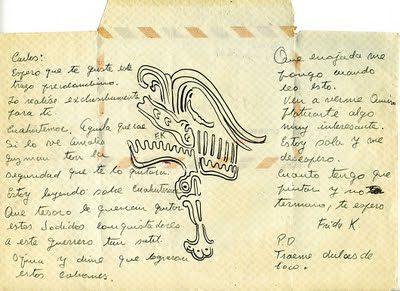 Carlos:
Espero que te guste este
trazo precolombino.
Lo realicé exclusivamente
para ti
Cuahutemoc. Aguila que cae
Si lo ve Amalia
Guzman ten la
seguridad que te lo quitara.
Estoy leyendo sobre Cuahutemoc
Que tesoro le querian quitar
estos Jodidos conquistadores
a este guerrero tan sutil.
Opina y dime que lograron
estos cabrones.
EK
Que enojada me
pongo cuando
leo esto.
Ven a verme Quiero
Platicarte algo
muy interesante.
Estoy sola y me
desespero.
Cuanto tengo que
pintar y no
termino, te espero
Frida K
P.D
Traeme dulces de
coco.